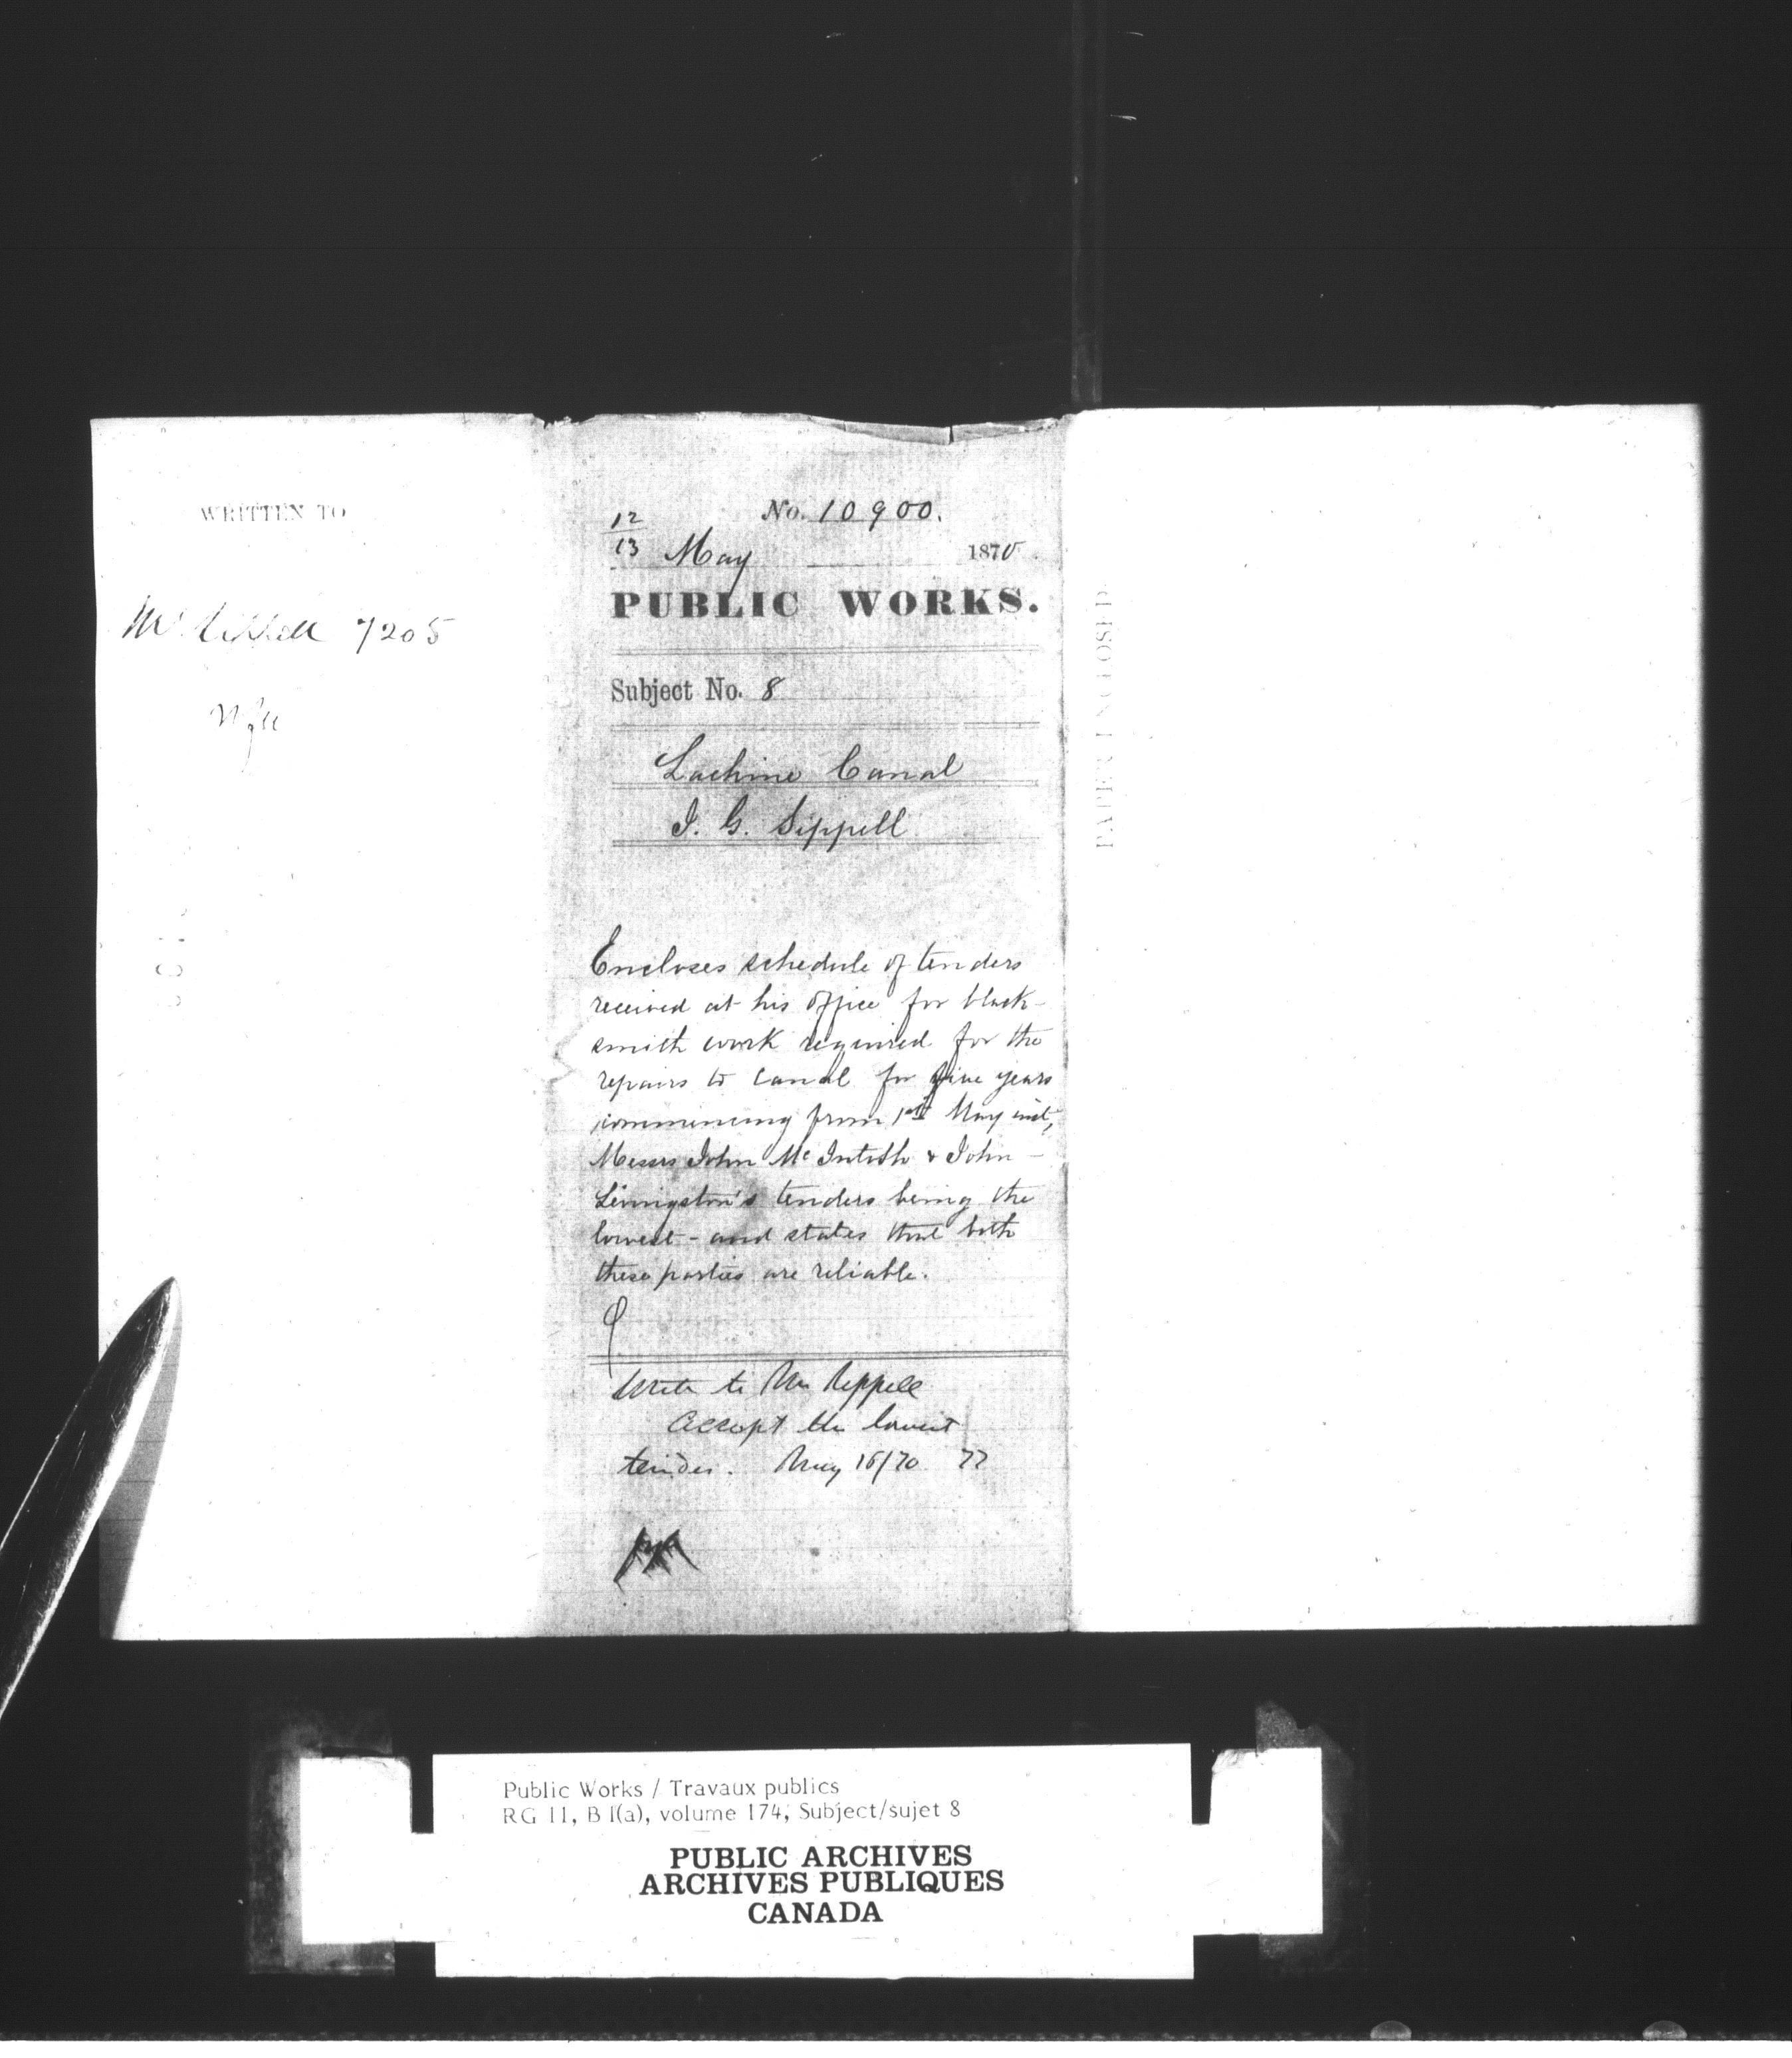 WRITTEN TO
Mr Sippell 7205
No. 10900.
12
13 May 1870.
PUBLIC WORKS.
Subject No. 8
Lachine Canal
J. G. Sippell
Encloses schedule of tenders
received at his office for black-
smith work required for the
repairs to Canal for five years
commencing from 1st May inst,
Messrs John McIntosh & John
Livingston's tenders being the
lowest - and states that both
these parties are reliable.
Write to Mr Sippell
accept the lowest
tender. May 16/70
PAPER ENCLOSED
Public Works / Travaux publics
RG 11, B 1(a), volume 174, Subject/sujet 8
PUBLIC ARCHIVES
ARCHIVES PUBLIQUES
CANADA